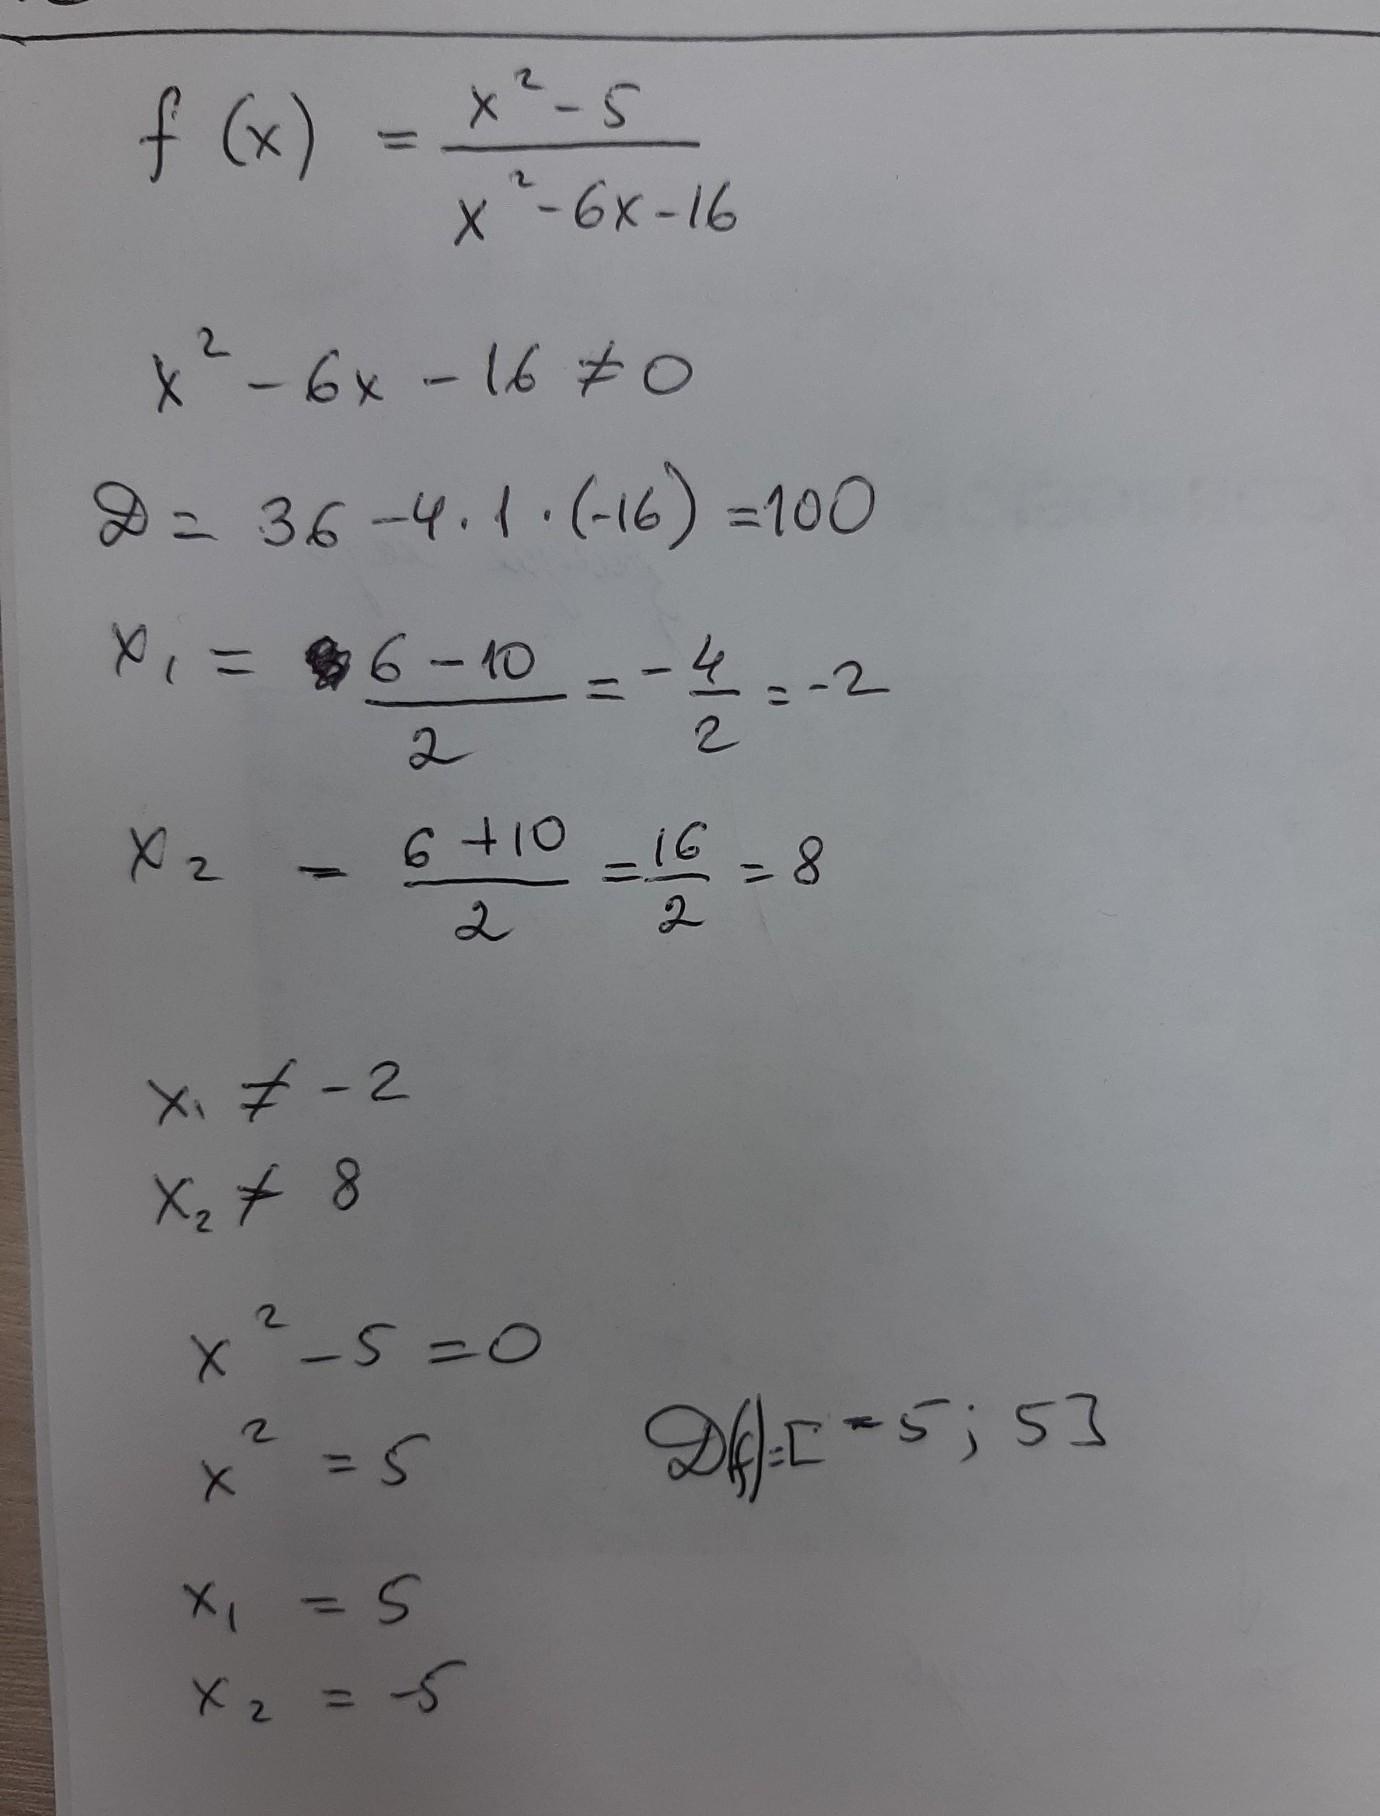 f (x) = (x² - 5)/(x² - 6x - 16)
x² - 6x - 16 ≠ 0
D = 36 - 4 · 1 · (-16) = 100
x₁ = (6 - 10)/2 = -4/2 = -2
x₂ - (6 + 10)/2 = 16/2 = 8
x₁ ≠ -2
x₂ ≠ 8
x² - 5 = 0
x² = 5
D(f) = [-5; 5]
x₁ = 5
x₂ = -5